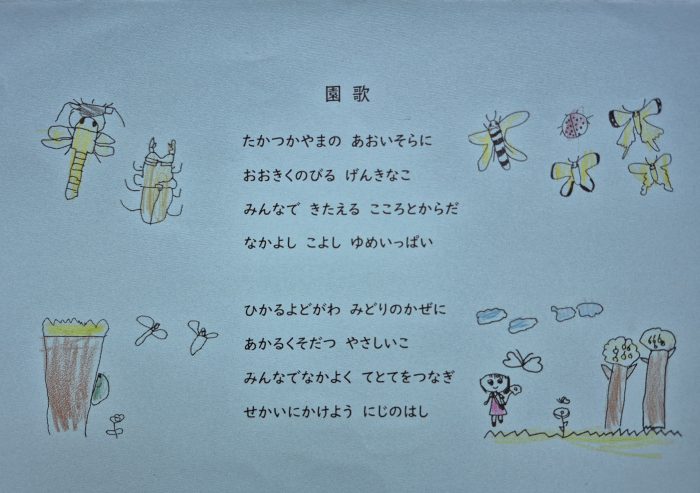 園歌
たかつかやまの あおいそらに
おおきくのびる げんきなこ
みんなで きたえる こころとからだ
なかよし こよし ゆめいっぱい
ひかるよどがわ みどりのかぜに
あかるくそだつ やさしいこ
みんなでなかよく てとてをつなぎ
せかいにかけよう にじのはし